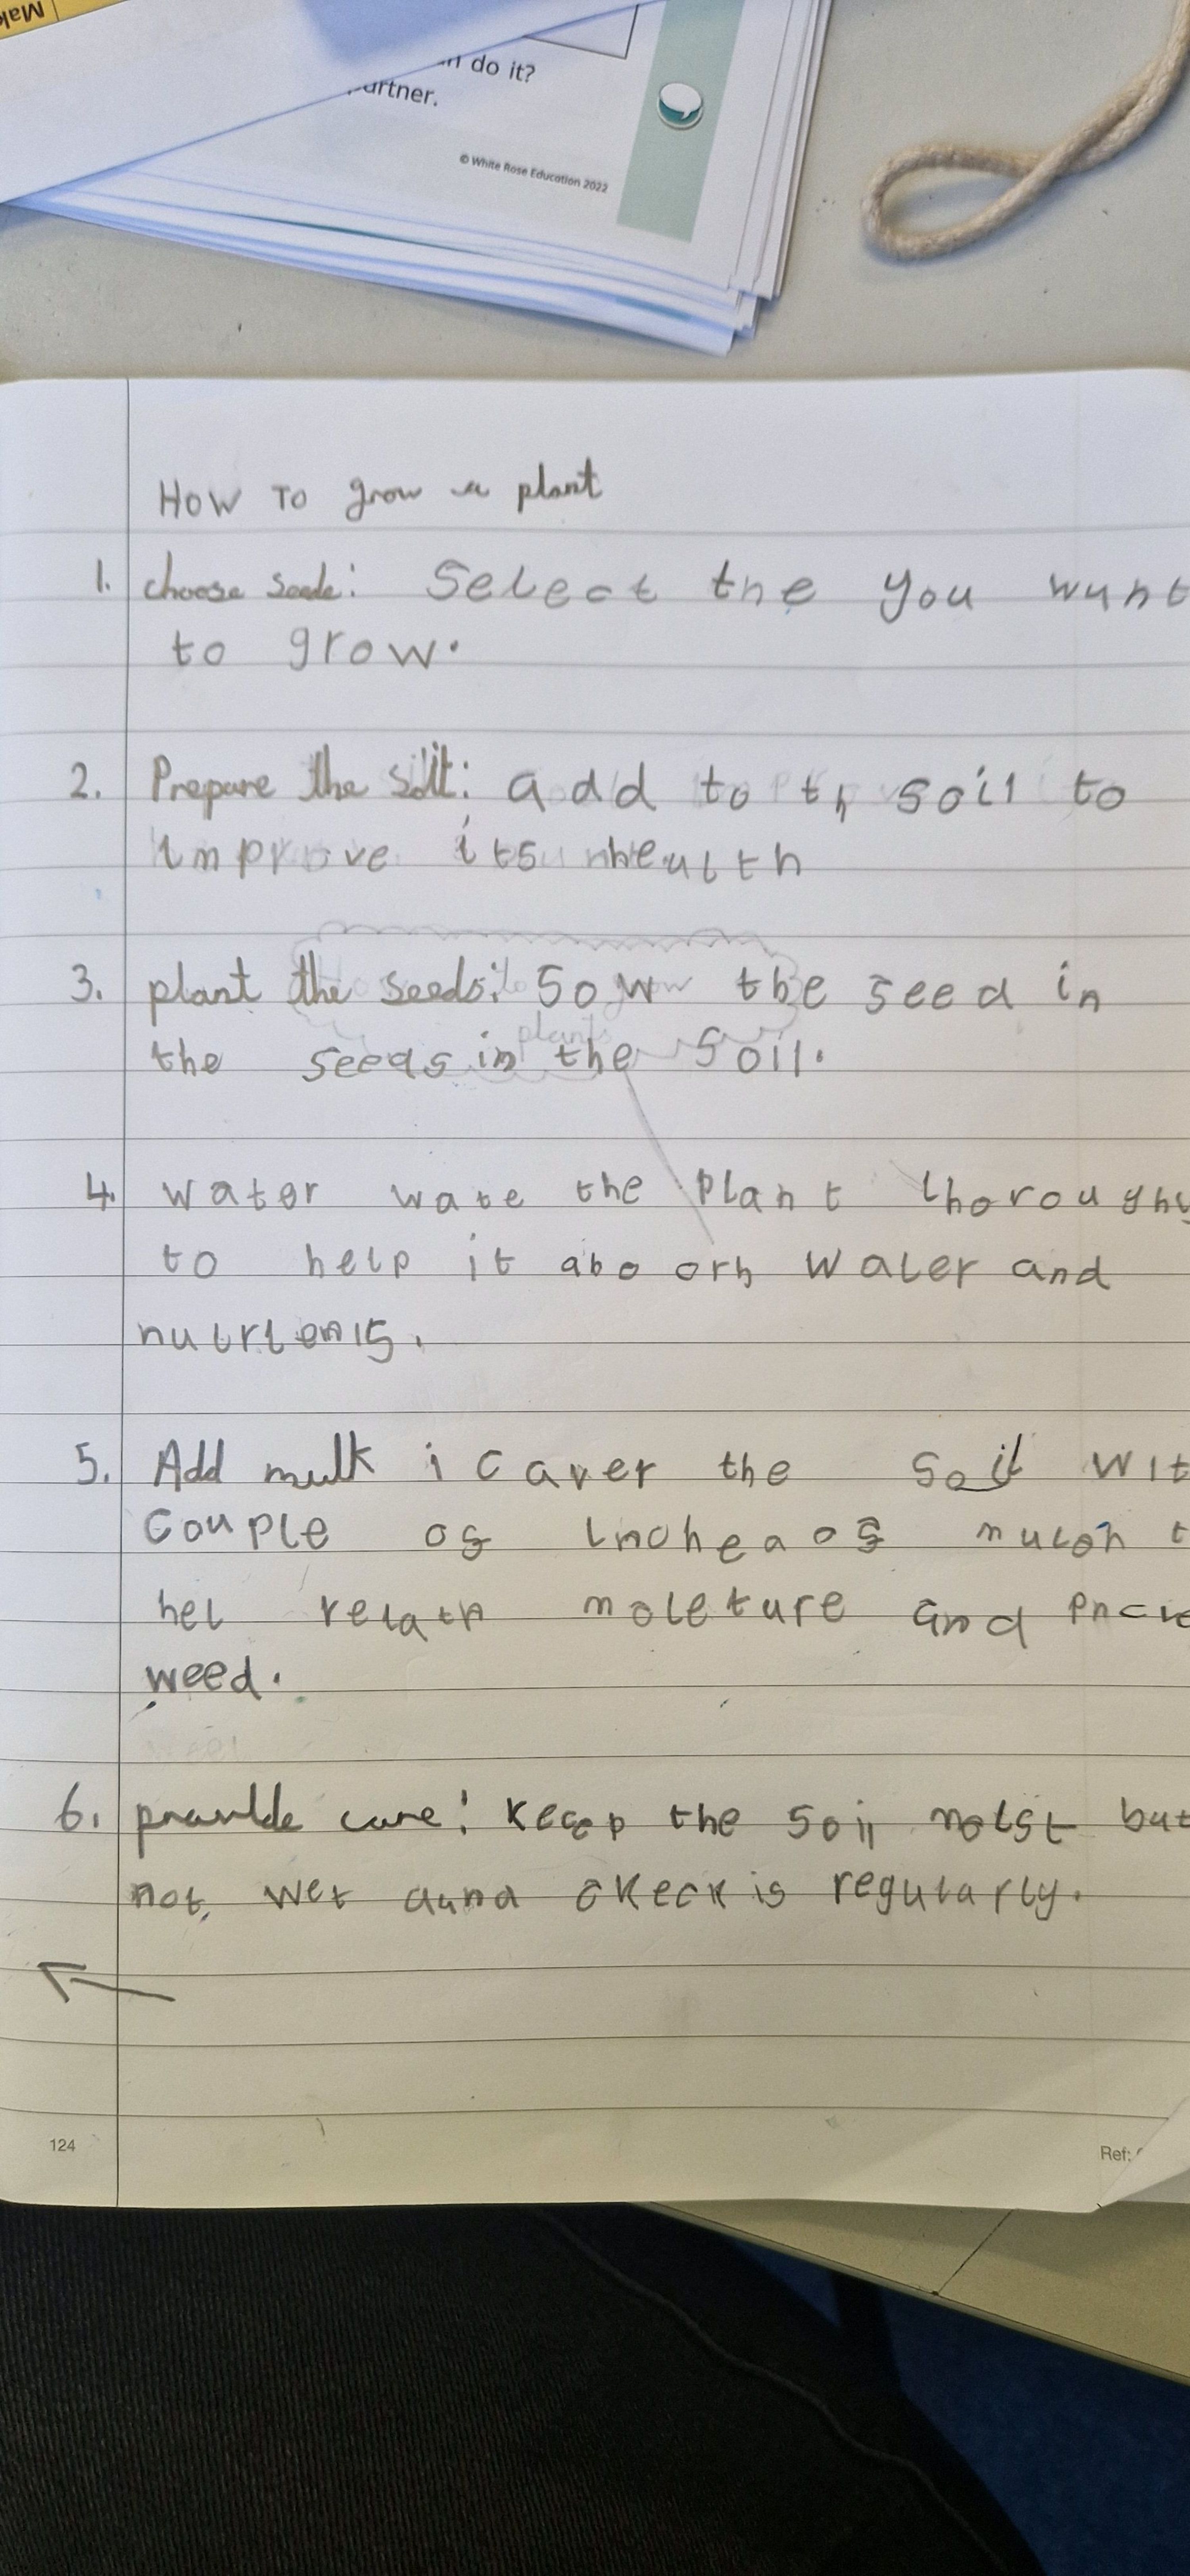 Mak
do it?
artner.
© White Rose Education 2022
How To grow a plant
1. choose seeds: Select the you want
to grow.
2. Prepare the soil: add to th soil to
improve its health
3. plant the seeds: Sow the seed in
plants
the seeds in the soil.
4. water wate the plant thoroughy
to help it abo orb water and
nutrients.
5. Add mulk i caver the soil wit
couple of inches of mulch t
hel moleture and
weed.
6. provide care: Keep the soil moist but
not, wet auna ckeck is regularly.
124
Ref: